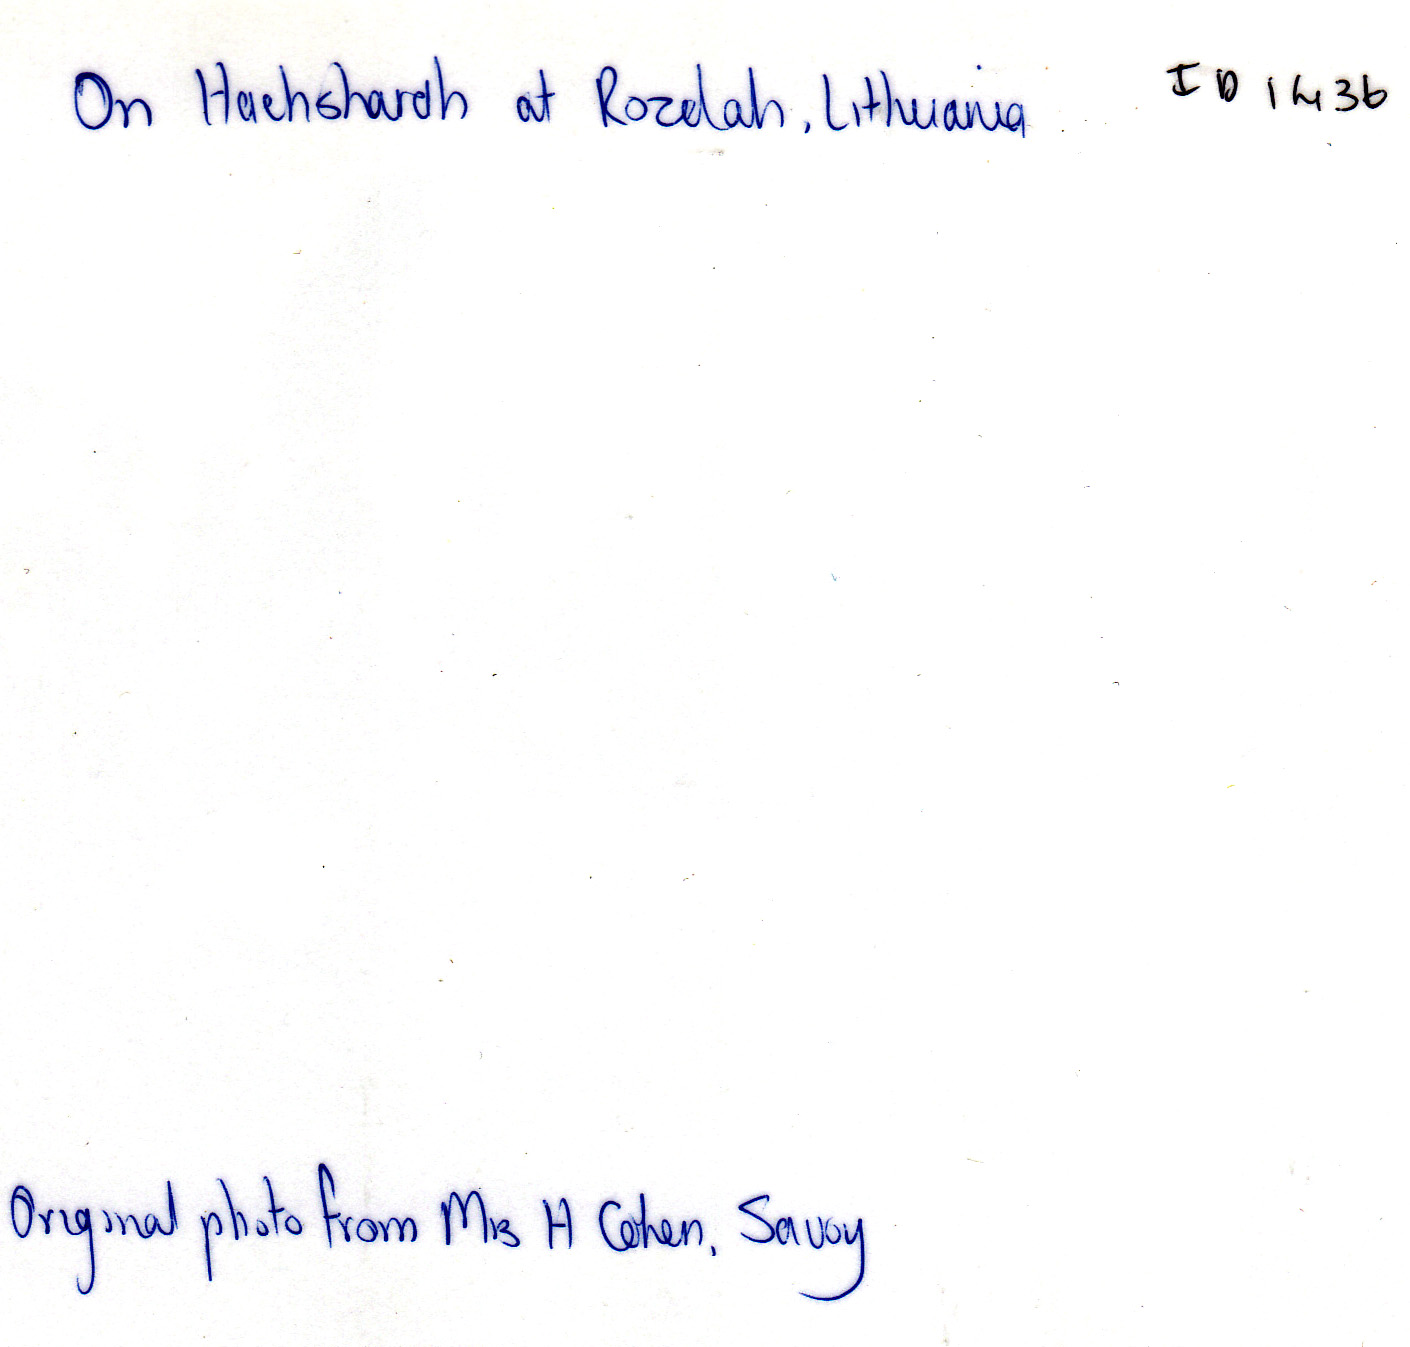 On Hachsharah at Rozdah, Lithuania
ID 1436
Original photo from Mrs H Cohen, Savoy